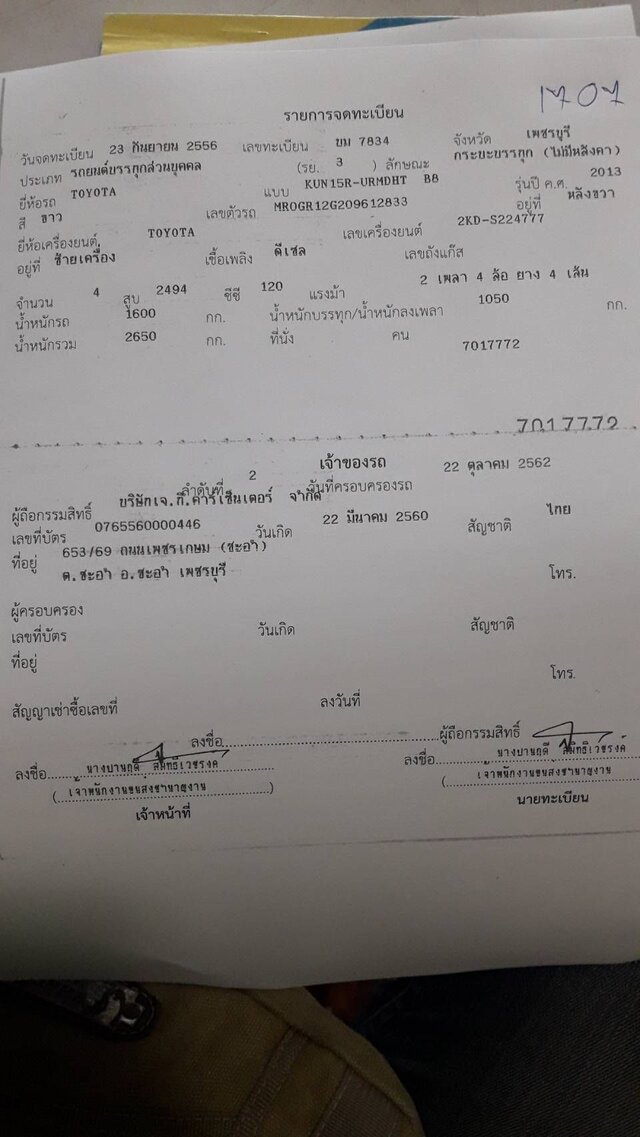 1707
รายการจดทะเบียน
วันจดทะเบียน 23 กันยายน 2556 เลขทะเบียน ขม 7834 จังหวัด เพชรบุรี
ประเภท รถยนต์บรรทุกส่วนบุคคล (รย. 3 ) ลักษณะ กระบะบรรทุก (ไม่มีหลังคา)
ยี่ห้อรถ TOYOTA แบบ KUN15R-URMDHT B8 รุ่นปี ค.ศ. 2013
สี ขาว เลขตัวรถ MROGR12G209612833 อยู่ที่ หลังขวา
ยี่ห้อเครื่องยนต์ TOYOTA เลขเครื่องยนต์ 2KD-S224777
อยู่ที่ ซ้ายเครื่อง เชื้อเพลิง ดีเซล เลขถังแก๊ส
จำนวน 4 สูบ 2494 ซีซี 120 แรงม้า 2 เพลา 4 ล้อ ยาง 4 เส้น
น้ำหนักรถ 1600 กก. น้ำหนักบรรทุก/น้ำหนักลงเพลา 1050 กก.
น้ำหนักรวม 2650 กก. ที่นั่ง คน 7017772
7017772
เจ้าของรถ
ลำดับที่ 2 วันที่ครอบครองรถ 22 ตุลาคม 2562
ผู้ถือกรรมสิทธิ์ บริษัทเจ.ที.คาร์เซ็นเตอร์ จำกัด
เลขที่บัตร 0765560000446 วันเกิด 22 มีนาคม 2560 สัญชาติ ไทย
ที่อยู่ 653/69 ถนนเพชรเกษม (ชะอำ)
ต.ชะอำ อ.ชะอำ เพชรบุรี โทร.
ผู้ครอบครอง
เลขที่บัตร วันเกิด สัญชาติ
ที่อยู่
โทร.
สัญญาเช่าซื้อเลขที่ ลงวันที่
ลงชื่อ ผู้ถือกรรมสิทธิ์
ลงชื่อ ลงชื่อ
( เจ้าพนักงานขนส่งชำนาญงาน ) ( เจ้าพนักงานขนส่งชำนาญงาน
เจ้าหน้าที่ นายทะเบียน